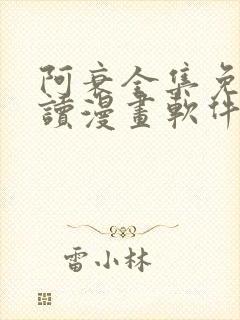 阿衰全集免
讀漫畫軟件
雷小林